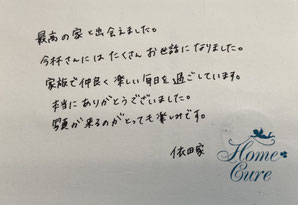 最高の家と出会えました。
今林さんには たくさん お世話になりました。
家族で仲良く楽しい毎日を過ごしています。
本当にありがとうございました。
写真が来るのがとっても楽しみです。
依田家
Home
Cure